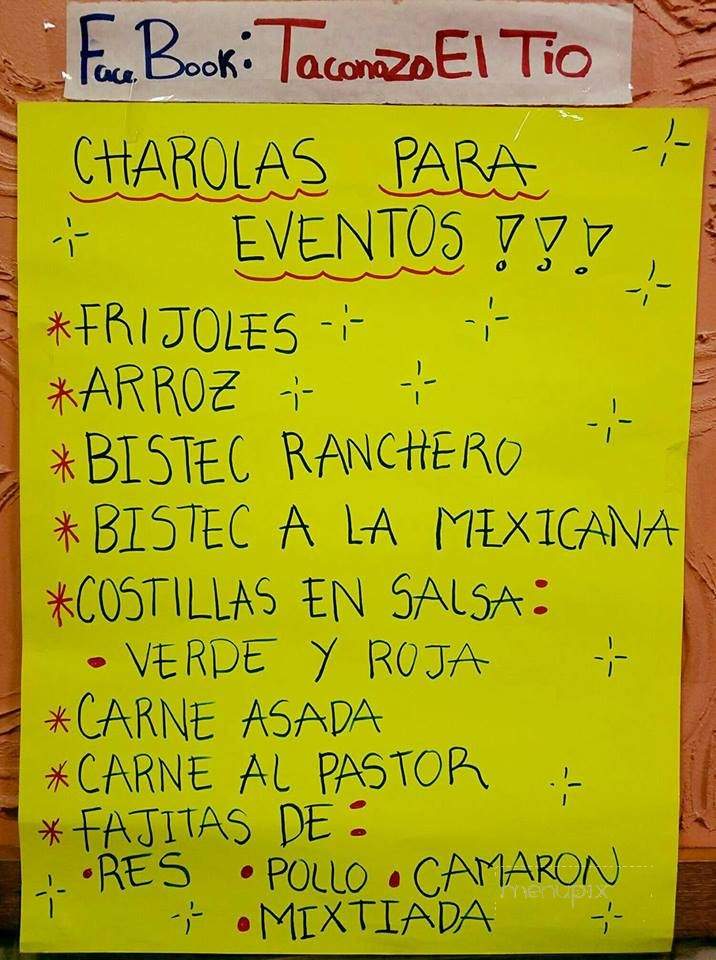 Face Book: Taconazo El Tio
CHAROLAS PARA
EVENTOS !!!
*FRIJOLES
*ARROZ
*BISTEC RANCHERO
*BISTEC A LA MEXICANA
*COSTILLAS EN SALSA:
• VERDE Y ROJA
*CARNE ASADA
*CARNE AL PASTOR
*FAJITAS DE:
•RES •POLLO •CAMARON
menupix
•MIXTIADA